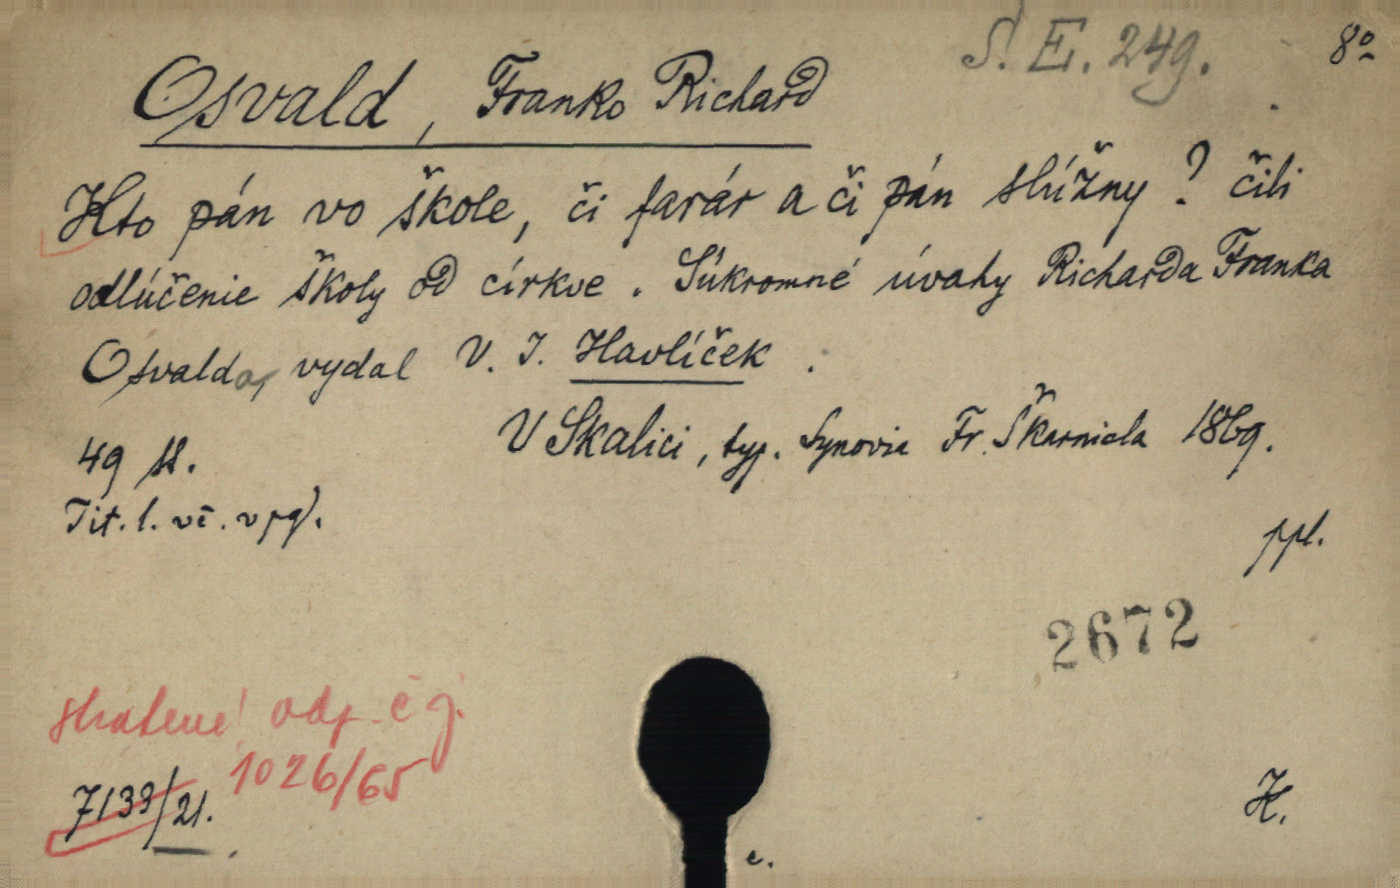 S. E. 249. 8º
Osvald, Franko Richard
Kto pán vo škole, či farár a či pán slúžny? čili
odlúčenie školy od církve. Súkromné úvahy Richarda Franka
Osvalda, vydal V. I. Havlíček.
V Skalici, typ. Synovia Fr. Škarnicla 1869.
49 s.
Tit. l. vč. v pg).
ppl.
2672
stratené odp. č j.
1026/65
7133/21.
H.
c.